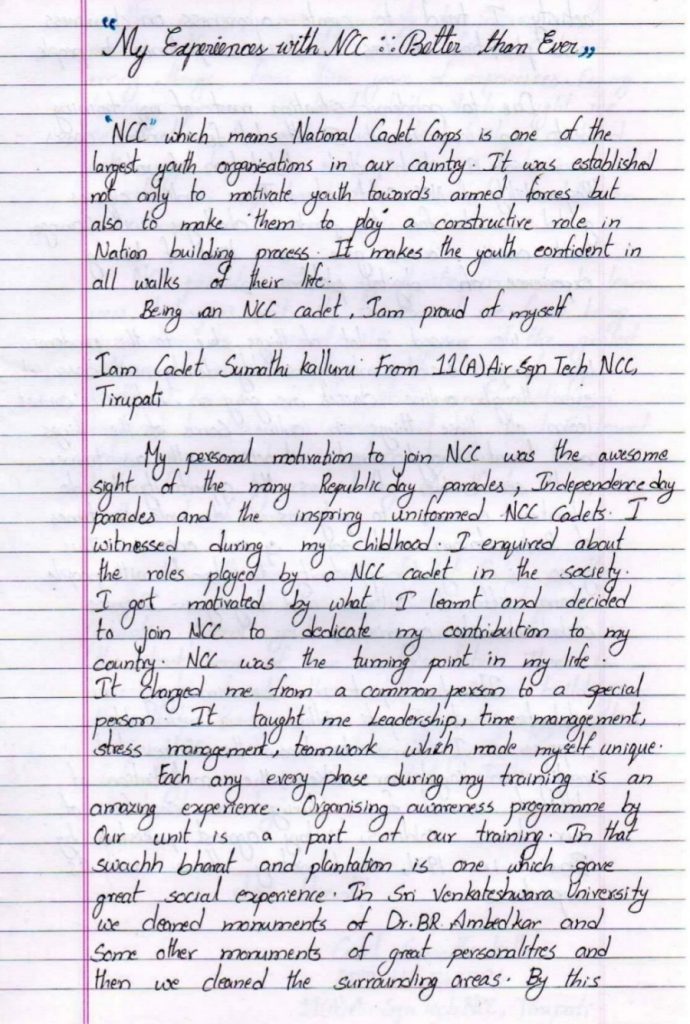 "My Experiences with NCC :: Better than Ever"
"NCC" which means National Cadet Corps is one of the
largest youth organisations in our country. It was established
not only to motivate youth towards armed forces but
also to make them to play a constructive role in
Nation building process. It makes the youth confident in
all walks of their life.
Being an NCC cadet, Iam proud of myself
Iam Cadet Sumathi kalluru From 11(A) Air Sqn Tech NCC,
Tirupati
My personal motivation to join NCC was the awesome
sight of the many Republic day parades, Independence day
parades and the inspring uniformed NCC Cadets. I
witnessed during my childhood. I enquired about
the roles played by a NCC cadet in the society.
I got motivated by what I learnt and decided
to join NCC to dedicate my contribution to my
country. NCC was the turning point in my life.
It changed me from a common person to a special
person It taught me Leadership, time management,
stress management, teamwork which made myself unique.
Each any every phase during my training is an
amazing experience. Organising awareness programme by
Our unit is a part of our training. In that
swachh bharat and plantation is one which gave
great social experience. In Sri Venkateshwara University
we cleaned monuments of Dr.BR. Ambedkar and
Some other monuments of great personalities and
then we cleaned the surrounding areas. By this